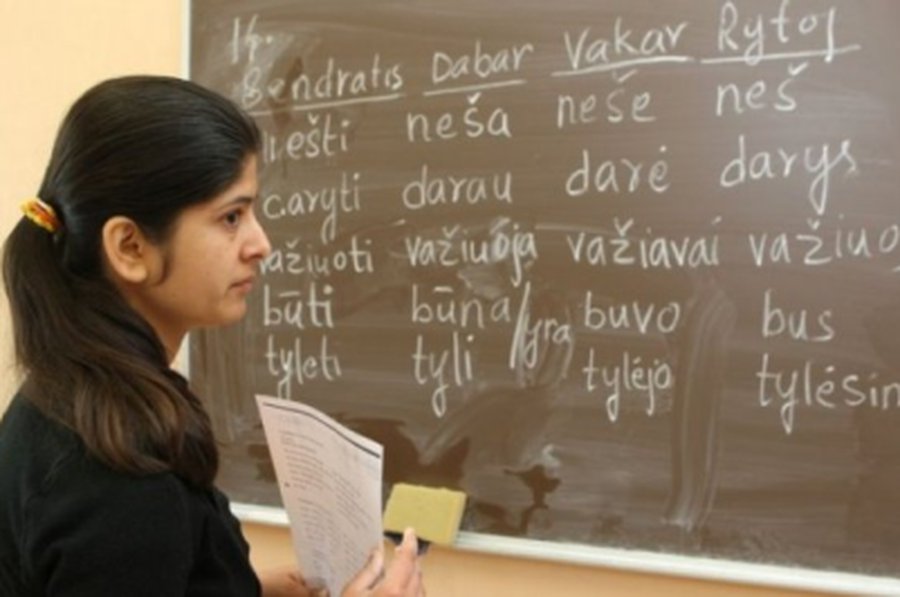 Bendratis Dabar Vakar Rytoj
nešti neša neše neš
daryti darau darė darys
važiuoti važiuoja važiavai važiuo
būti būna/yra buvo bus
tylėti tyli tylėjo tylėsin